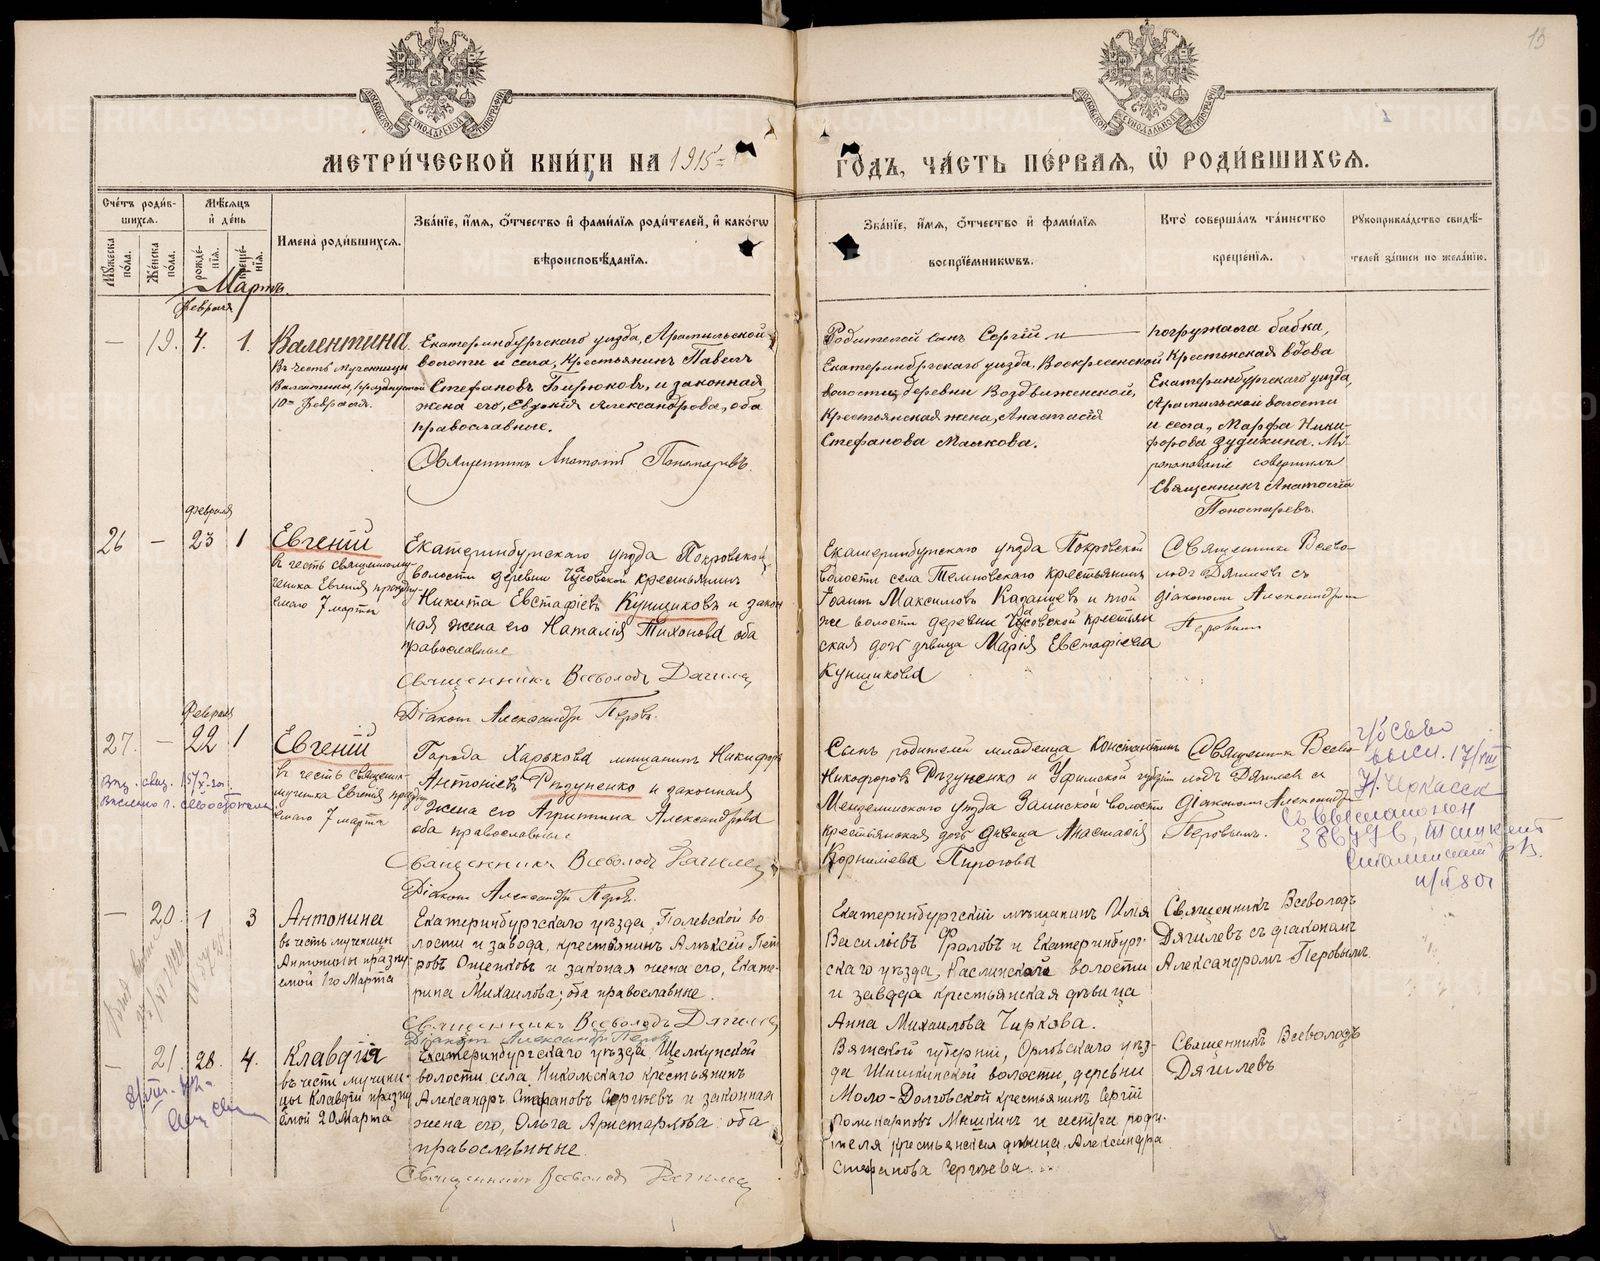 13
МЕТРИ́ЧЕСКОЙ КНИ́ГИ НА 1915 =
ГО́ДЪ, ЧА́СТЬ ПЕ́РВАЯ, Ѡ҆ РОДИ́ВШИХСЯ.
Сче́тъ роди́в-
шихся.
Мꙋ́жеска по́ла.
Же́нска по́ла.
Мѣ́сяцъ
и҆ де́нь
рожде́-
нїя.
креще́-
нїя.
И҆мена̀ роди́вшихся.
Зва́нїе, и҆́мя, ѻ҆́тчество и҆ фами́лїя роди́телей, и҆ како́гѡ
вѣроисповѣ́данїя.
Зва́нїе, и҆́мя, ѻ҆́тчество и҆ фами́лїя
воспрїе́мникѡвъ.
Кто̀ соверша́лъ та́инство
креще́нїя.
Рꙋкоприкла́дство свидѣ́-
телей за́писи по жела́нїю.
Мартъ.
Февраля
— 19. 4. 1. Валентина
Въ честь мученицы
Валентины, празднуемой
10го Февраля.
Екатеринбургскаго уѣзда, Арамильской
волости и села, Крестьянинъ Павелъ
Стефановъ Бирюковъ, и законная
жена его, Евдокія Александрова, оба
православные.
Священникъ Анатолій Пономаревъ.
Родителей сынъ Сергій и
Екатеринбургскаго уѣзда, Воскресенской
волости, деревни Воздвиженской,
Крестьянская жена, Анастасія
Стефанова Малкова.
погружала бабка,
Крестьянская вдова
Екатеринбургскаго уѣзда,
Арамильской волости
и села, Марфа Ники-
форова Зудихина. Мѵ-
ропомазаніе совершилъ
Священникъ Анатолій
Пономаревъ.
февраля
26 — 23 1 Евгеній
въ честь священному-
ченика Евгенія праздну-
емаго 7 марта
Екатеринбургскаго уѣзда Покровской
волости деревни Часовской крестьянинъ
Никита Евстафіевъ Кунщиковъ и закон
ная жена его Наталія Тихонова оба
православные
Священникъ Всеволодъ Дягилев
Діаконъ Александръ Перовъ.
Екатеринбургскаго уѣзда Покровской
волости села Темновскаго крестьянинъ
Іоаннъ Максимовъ Казанцевъ и той
же волости деревни Часовской крестьян
ская дочь дѣвица Марія Евстафіева
Кунщикова
Священникъ Всево-
лодъ Дягилевъ съ
діакономъ Александромъ
Перовымъ
Февраля
27. — 22 1 Евгеній
въ честь священно-
мученика Евгенія празд
емаго 7 марта
Города Харькова мещанинъ Никифоръ
Антоніевъ Рѣзуненко и законная
жена его Агрипина Александрова
оба православные
Священникъ Всеволодъ Дягилев
Діаконъ Александръ Перовъ.
Сынъ родителей младенца Константинъ
Никифоровъ Рѣзуненко и Уфимской губерніи
Мензелинскаго уѣзда Заинской волости
крестьянская дочь дѣвица Анастасія
Корнилева Пирогова
Священникъ Всево-
лодъ Дягилевъ съ
діакономъ Александромъ
Перовымъ.
высл. 17/VIII
Н. Черкасск
— 20. 1 3 Антонина
въ честь мученицы
Антонины празну-
емой 1го Марта
Екатеринбургскаго уѣзда, Полевской во
лости и завода, крестьянинъ Алѣксѣй Пет
ровъ Ощепковъ и законая жена его, Екате-
рина Михаилова; оба православные.
Священникъ Всеволодъ Дягилев
Діаконъ Александръ Перов
Екатеринбургскій мѣщанинъ Илія
Василіевъ Фроловъ и Екатеринбург-
скаго уѣзда, Каслинскаго волости
и завода крестьянская дѣвица
Анна Михаилова Чиркова.
Священникъ Всеволодъ
Дягилевъ съ діакономъ
Александромъ Перовымъ.
— 21. 28. 4. Клавдія
въ честь мучени-
цы Клавдіи празну
емой 20 Марта
Екатеринбургскаго уѣзда, Щелкунской
волости, села Никольскаго крестьянинъ
Александръ Стефановъ Сергѣевъ и законная
жена его, Ольга Аристархова; оба
православные.
Священникъ Всеволодъ Дягилев
Вятской губерніи, Орловскаго уѣз-
да Шишкинской волости, деревни
Моло-Долговской крестьянинъ Сергій
Поликарповъ Мышкинъ и сестра роди-
теля крестьянская дѣвица Александра
Стефанова Сергѣева.
Священникъ Всеволодъ
Дягилевъ
METRIKI.GASO-URAL.RU